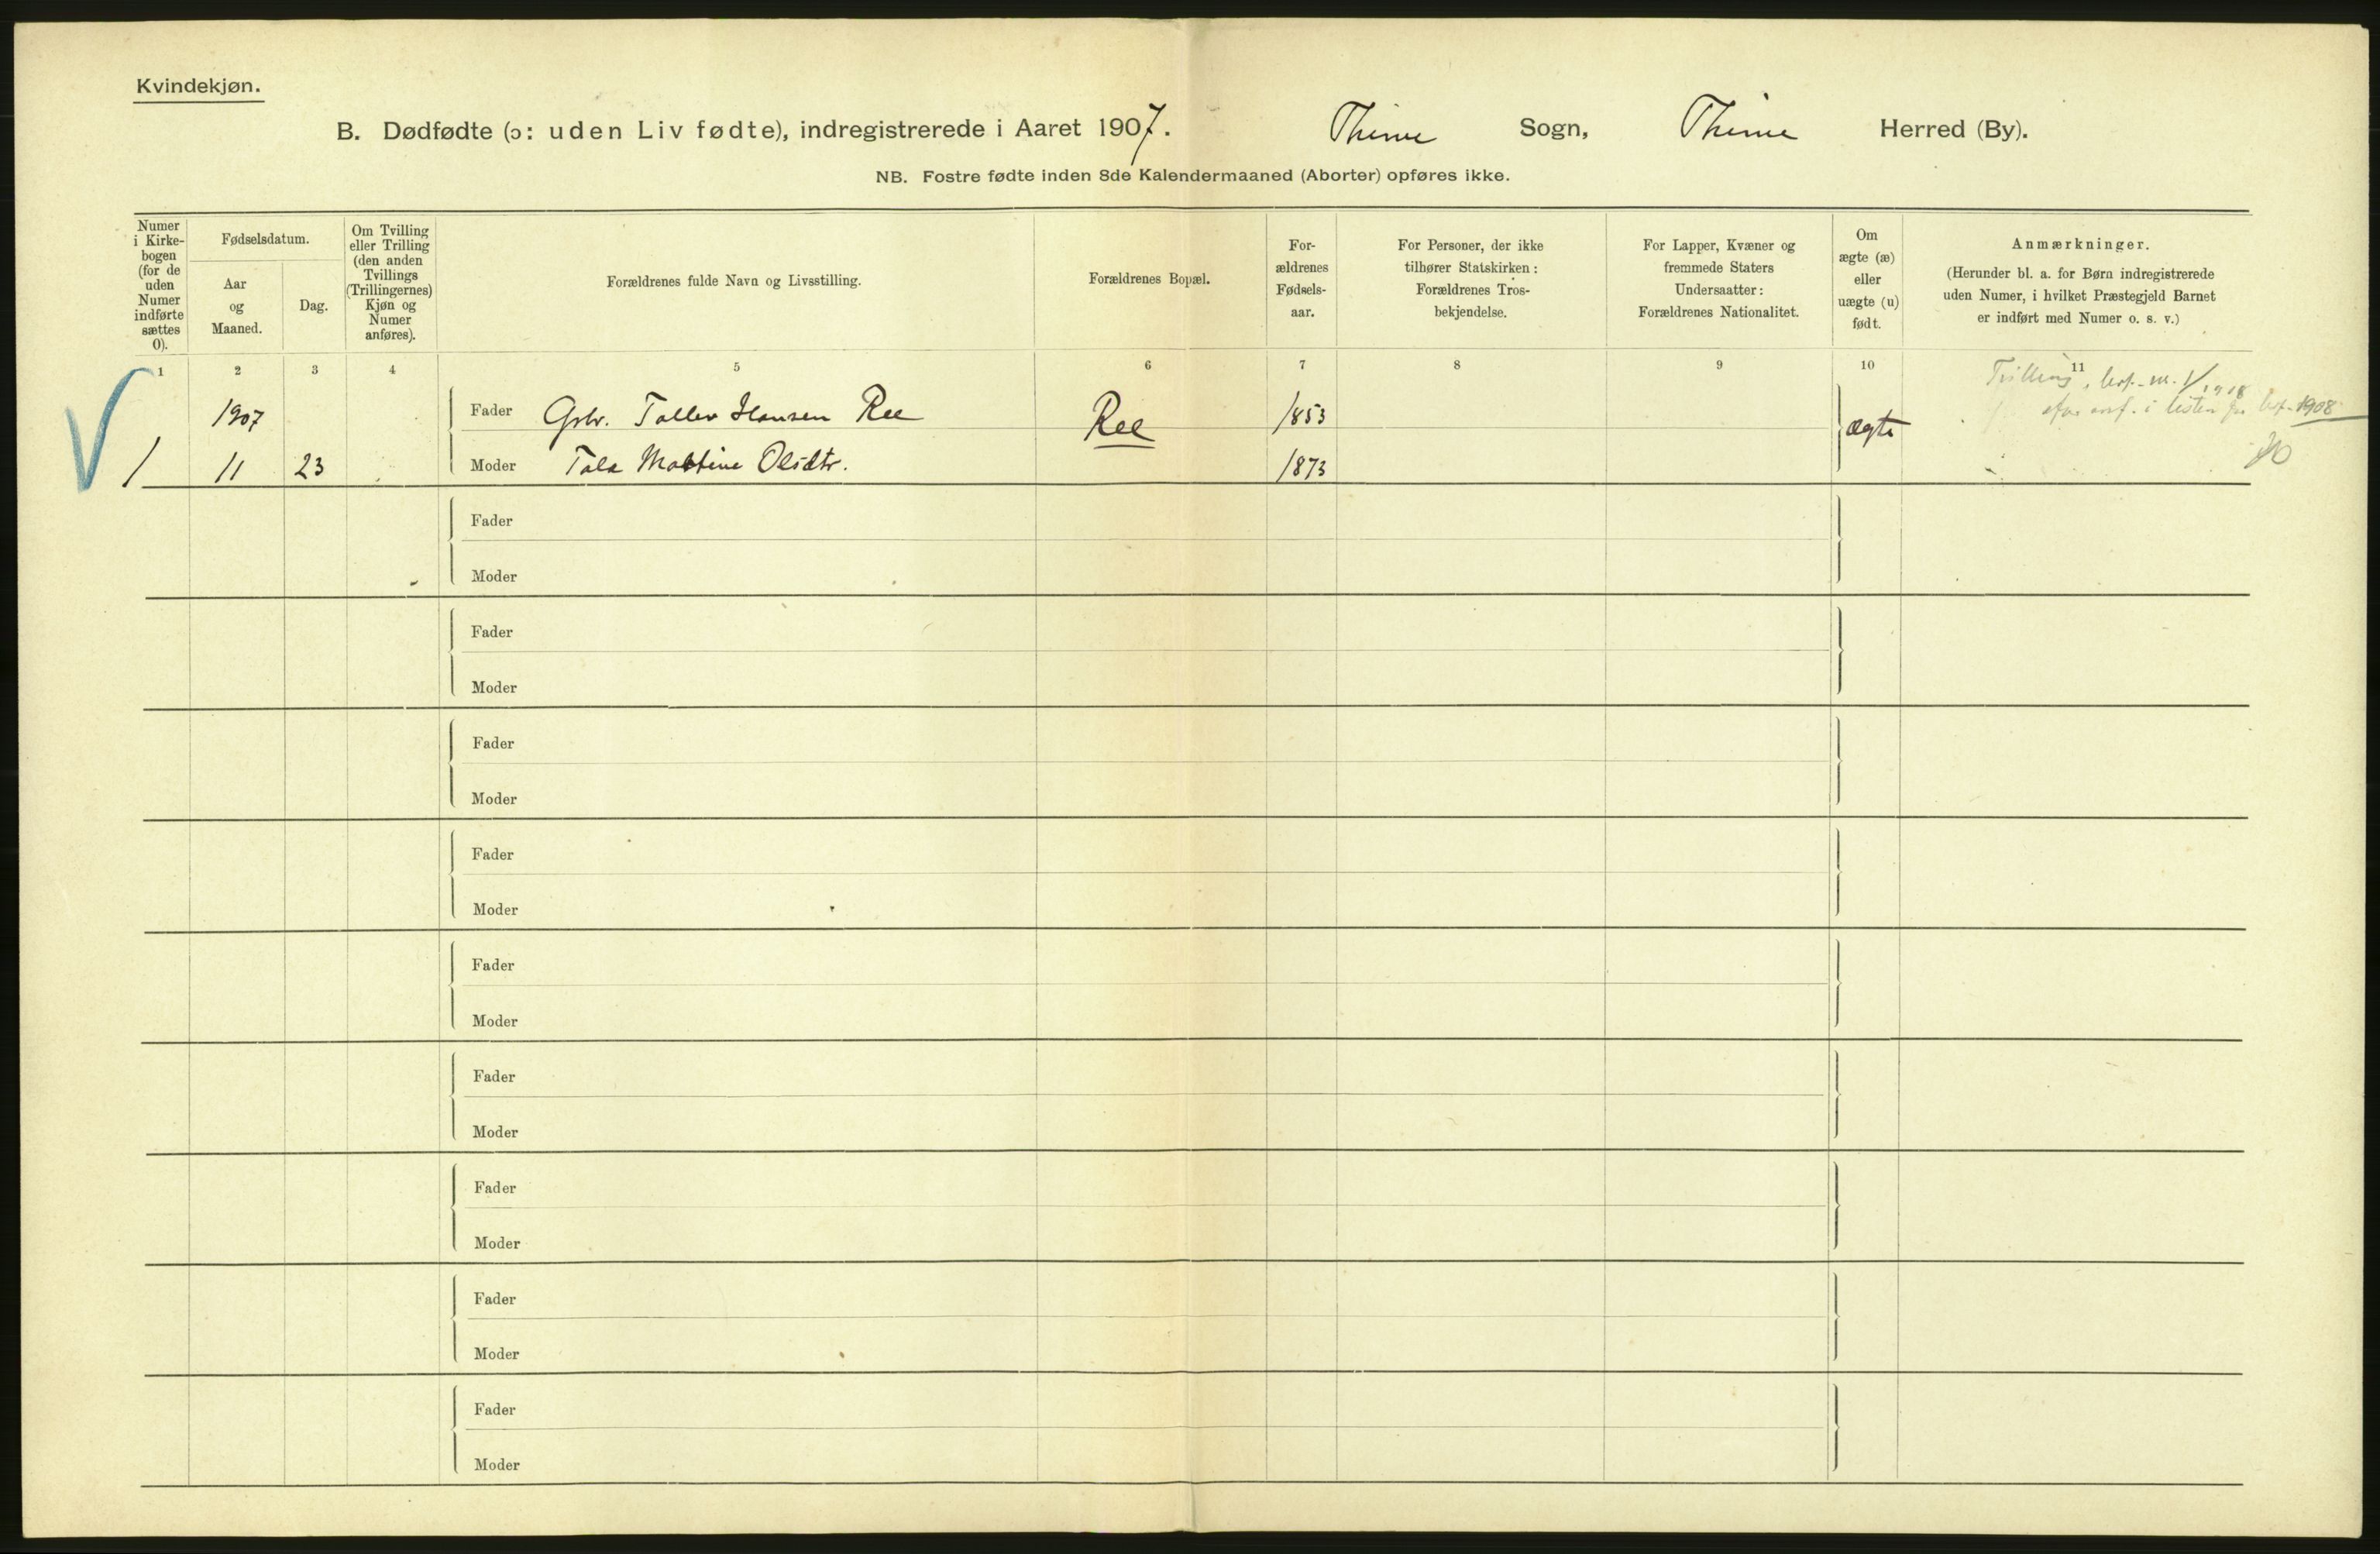 Kvindekjøn.
B. Dødfødte (ɔ: uden Liv fødte), indregistrerede i Aaret 1907. Thime Sogn, Thime Herred (By).
NB. Fostre fødte inden 8de Kalendermaaned (Aborter) opføres ikke.
Numer i Kirke-bogen (for de uden Numer indførte sættes 0).
Fødselsdatum.
Aar og Maaned.
Dag.
Om Tvilling eller Trilling (den anden Tvillings (Trillingernes) Kjøn og Numer anføres).
Forældrenes fulde Navn og Livsstilling.
Forældrenes Bopæl.
For-ældrenes Fødsels-aar.
For Personer, der ikke tilhører Statskirken: Forældrenes Tros-bekjendelse.
For Lapper, Kvæner og fremmede Staters Undersaatter: Forældrenes Nationalitet.
Om ægte (æ) eller uægte (u) født.
Anmærkninger.
(Herunder bl. a. for Børn indregistrerede uden Numer, i hvilket Præstegjeld Barnet er indført med Numer o. s. v.)
1 2 3 4 5 6 7 8 9 10 11
Tvilling
1907 Fader Gbr. Tollev Hansen Ree Ree 1853 ægte i listen 1908
1 11 23 Moder Tala Martine Olsdtr. 1873
Fader
Moder
Fader
Moder
Fader
Moder
Fader
Moder
Fader
Moder
Fader
Moder
Fader
Moder
Fader
Moder
Fader
Moder